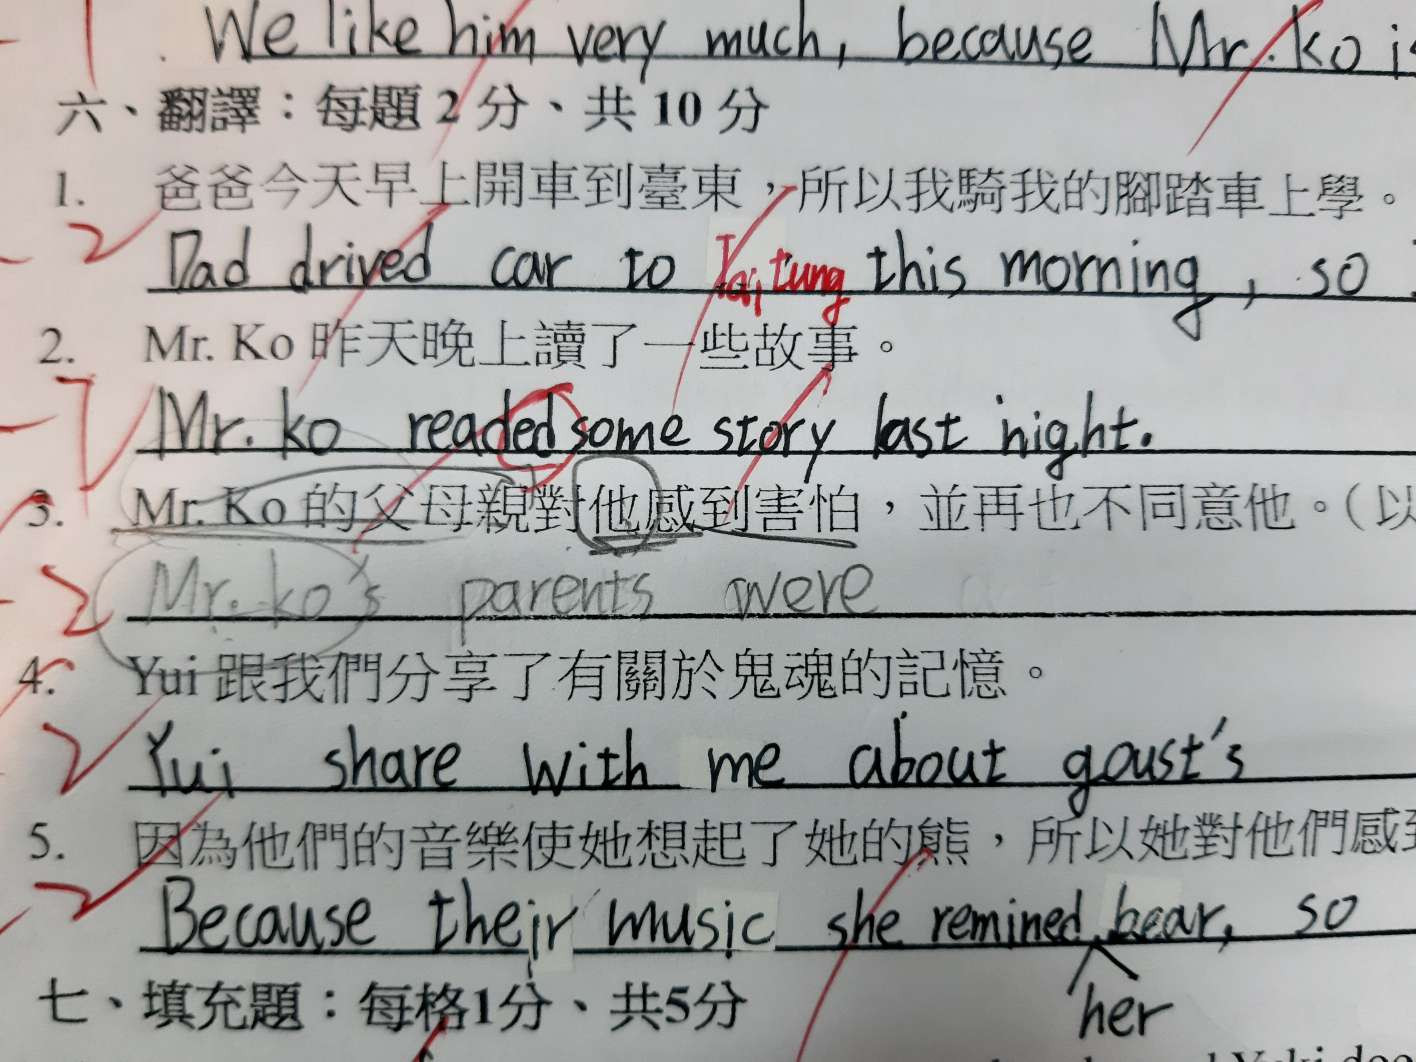 We like him very much, because Mr. Ko is
六、翻譯：每題 2 分、共 10 分
1. 爸爸今天早上開車到臺東，所以我騎我的腳踏車上學。
-2
Dad drived car to Taitung this morning, so
2. Mr. Ko 昨天晚上讀了一些故事。
-1
Mr. ko readed some story last night.
3. Mr. Ko 的父母親對他感到害怕，並再也不同意他。（以
-2
Mr. ko's parents were
4. Yui 跟我們分享了有關於鬼魂的記憶。
-2
Yui share with me about goust's
5. 因為他們的音樂使她想起了她的熊，所以她對他們感到
-2
Because their music she remined bear, so
her
七、填充題：每格1分、共5分